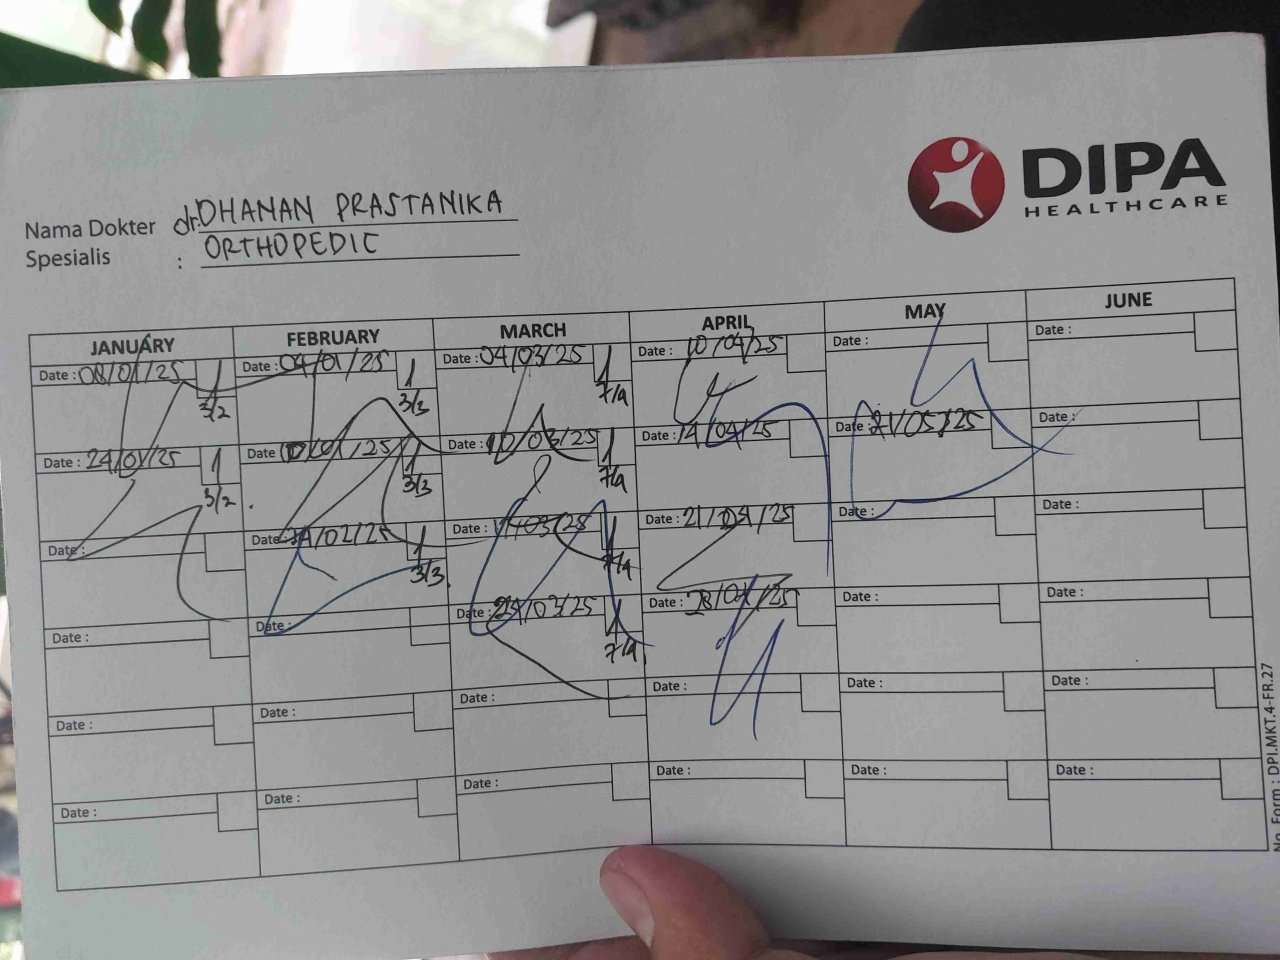 DIPA
HEALTHCARE
Nama Dokter dr. DHANAN PRASTANIKA
Spesialis : ORTHOPEDIC
JANUARY FEBRUARY MARCH APRIL MAY JUNE
Date : 08/01/25 1 Date : 04/01/25 1 Date : 04/03/25 1 Date : 10/04/25 Date : Date :
3/2 3/3 7/4
Date : 24/01/25 1 Date : 10/01/25 1 Date : 10/03/25 1 Date : 14/04/25 Date : 21/05/25 Date :
3/2 3/3 7/4
Date : Date : /02/25 1 Date : 1 Date : 21/04/25 Date : Date :
3/3 7/4
Date : Date : Date : /03/25 1 Date : 28/04/25 Date : Date :
7/4
Date : Date : Date : Date : Date : Date :
Date : Date : Date : Date : Date : Date :
No. Form : DPI.MKT.4-FR.27